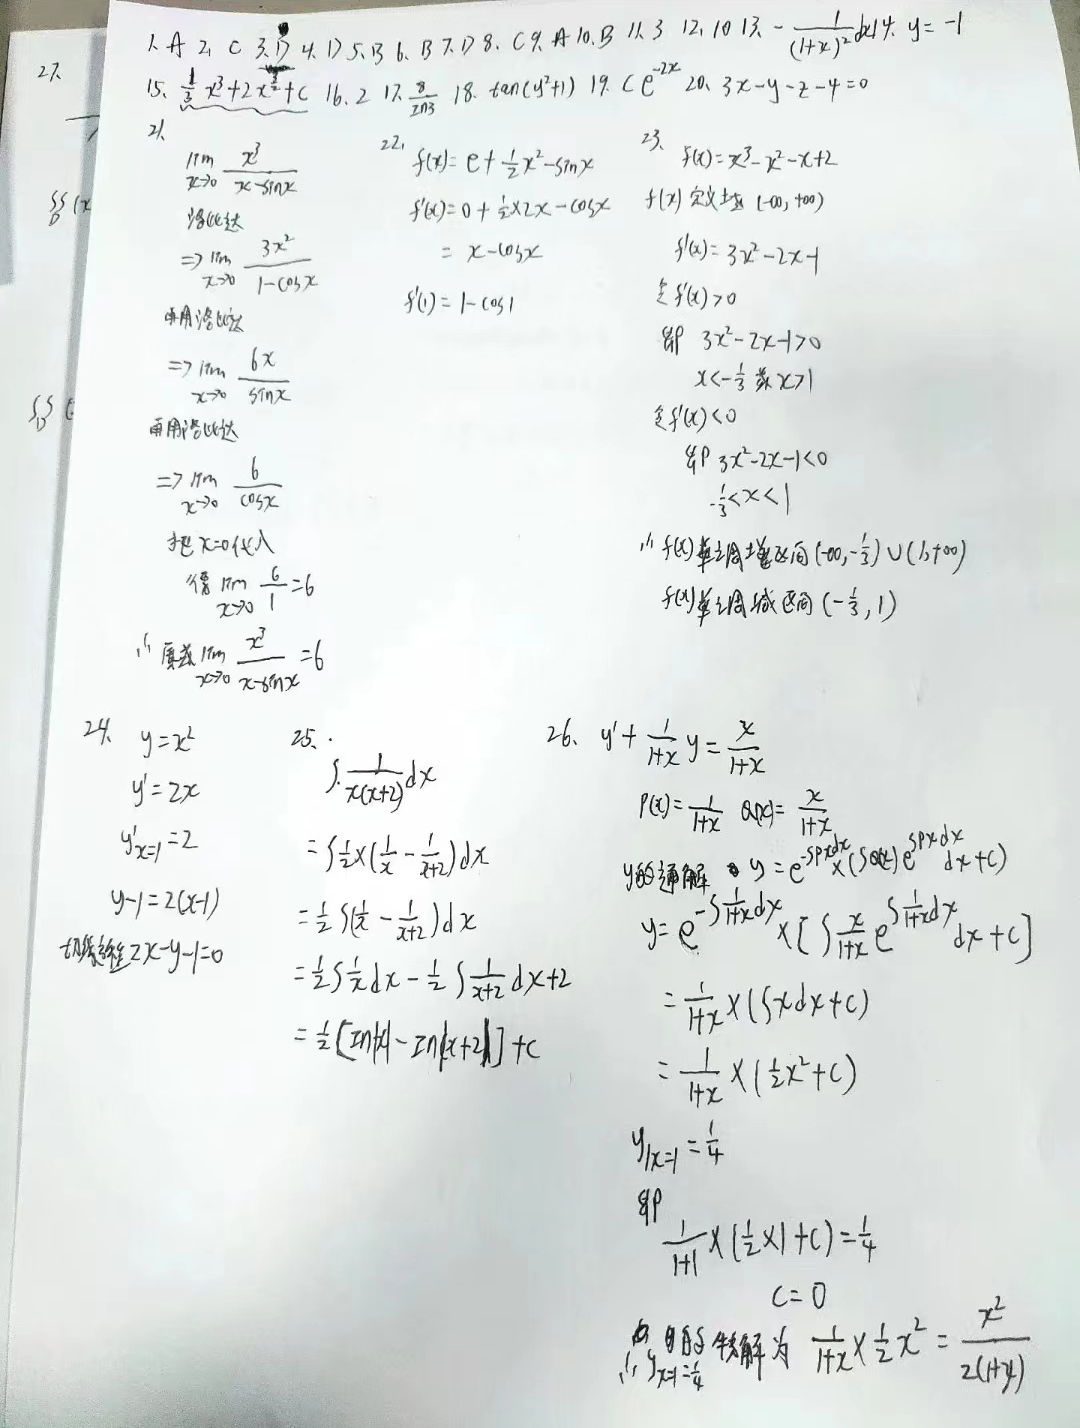 1. A 2. C 3. D 4. D 5. B 6. B 7. D 8. C 9. A 10. B 11. 3 12. 10 13. -1/(1+x)² dx 14. y=-1
15. 1/3 x³+2x^(3/2)+C 16. 2 17. 8/ln3 18. tan(y²+1) 19. Ce^(-2x) 20. 3x-y-z-4=0
21.
lim x→0 x³/(x-sinx)
洛必达
=> lim x→0 3x²/(1-cosx)
再用洛必达
=> lim x→0 6x/sinx
再用洛必达
=> lim x→0 6/cosx
把 x=0代入
得 lim x→0 6/1 =6
∴ 原式 lim x→0 x³/(x-sinx) =6
22.
f(x)=e+1/2 x²-sinx
f'(x)=0+1/2×2x-cosx
= x-cosx
f'(1)=1-cos1
23.
f(x)=x³-x²-x+2
f(x)定义域 (-∞,+∞)
f'(x)=3x²-2x-1
令f'(x)>0
即 3x²-2x-1>0
x<-1/3 或 x>1
令f'(x)<0
即 3x²-2x-1<0
-1/3<x<1
∴ f(x)单调增区间(-∞,-1/3)∪(1,+∞)
f(x)单调减区间(-1/3,1)
24. y=x²
y'=2x
y'x=1=2
y-1=2(x-1)
切线方程2x-y-1=0
25.
∫1/(x(x+2)) dx
=∫1/2×(1/x - 1/(x+2))dx
=1/2∫(1/x - 1/(x+2))dx
=1/2∫1/x dx - 1/2∫1/(x+2) dx+2
=1/2[ln|x|-ln|x+2|]+C
26. y'+1/(1+x) y = x/(1+x)
P(x)=1/(1+x) Q(x)=x/(1+x)
y的通解 y=e^(-∫Pxdx)×(∫Q(x)e^(∫Pxdx)dx+C)
y=e^(-∫1/(1+x)dx)×[∫x/(1+x) e^(∫1/(1+x)dx)dx+C]
=1/(1+x)×(∫xdx+C)
=1/(1+x)×(1/2x²+C)
y|x=1=1/4
即
1/(1+1)×(1/2×1+C)=1/4
C=0
∴ yx=1=1/4 的特解为 1/(1+x)×1/2x²=x²/(2(1+x))
27.